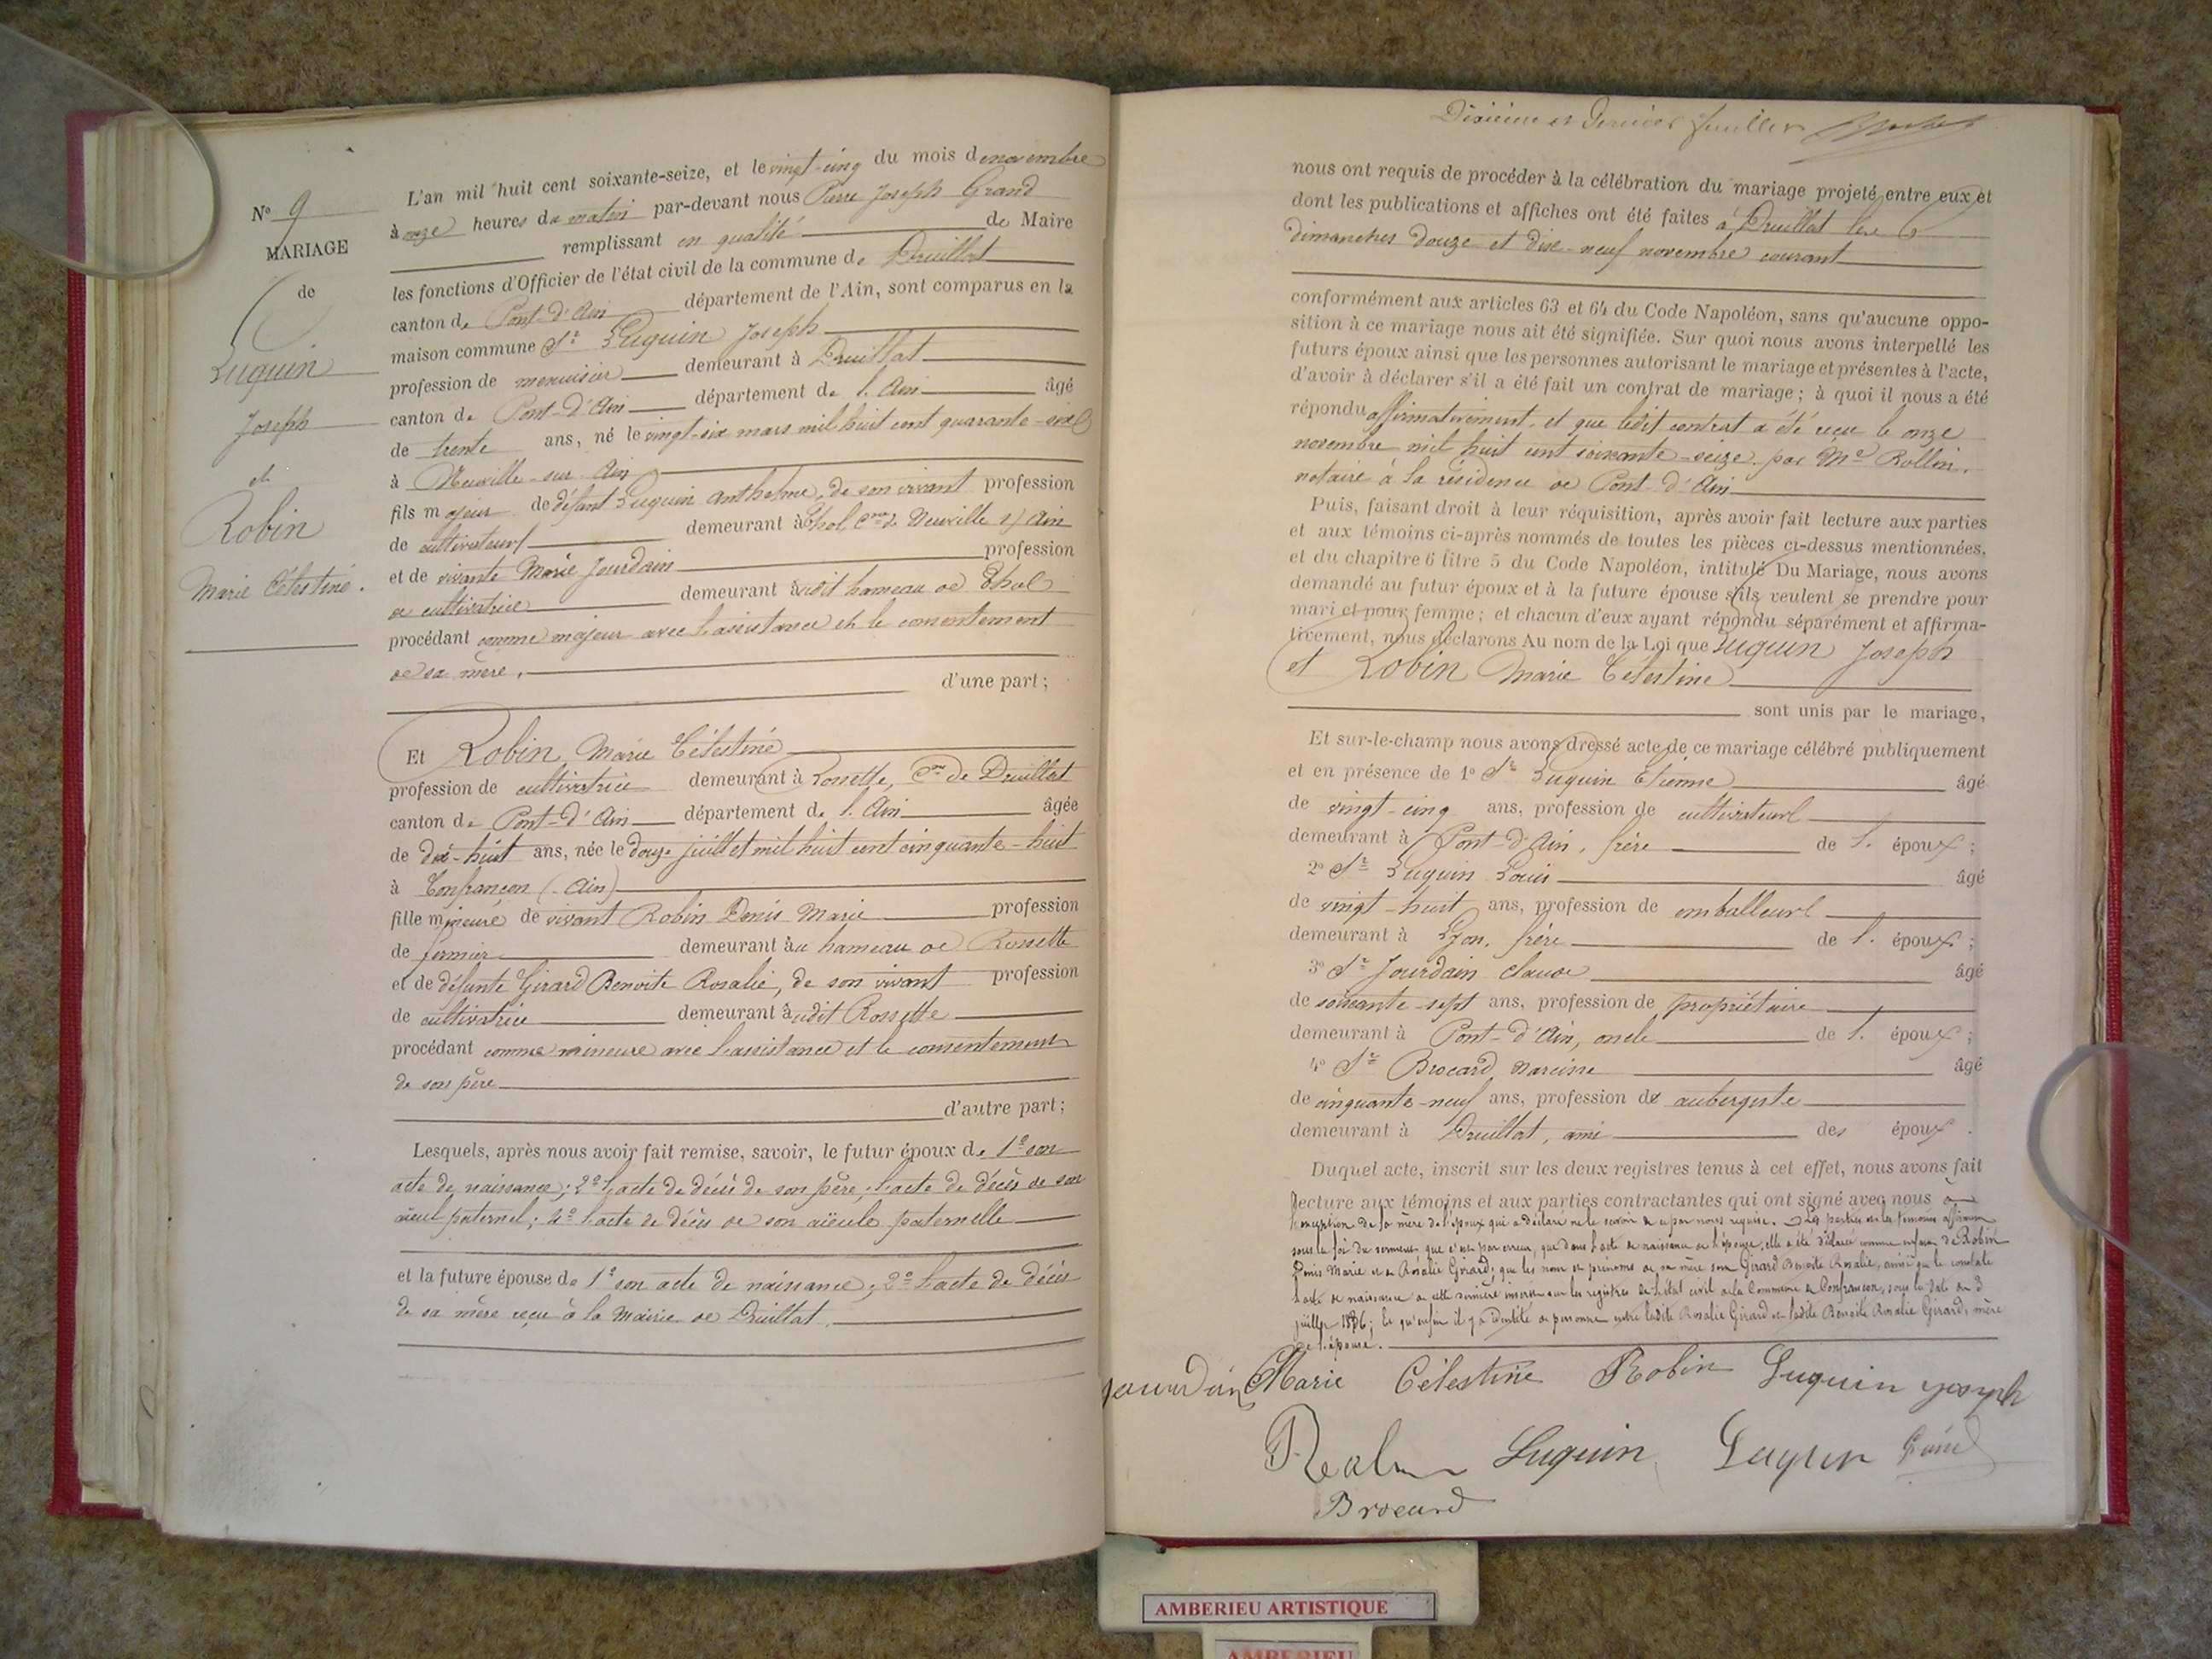 N° 9
MARIAGE
de
Luquin
Joseph
et
Robin
Marie Célestine.
L'an mil huit cent soixante-seize, et le vingt-cinq du mois de novembre
à onze heures du matin par-devant nous Pierre Joseph Grand
remplissant en qualité de Maire
les fonctions d'Officier de l'état civil de la commune de Druillat
canton de Pont-d'Ain département de l'Ain, sont comparus en la
maison commune Sr Luquin Joseph
profession de menuisier demeurant à Druillat
canton de Pont-d'Ain département de l'Ain âgé
de trente ans, né le vingt-six mars mil huit cent quarante-six
à Neuville-sur-Ain
fils majeur de défunt Luquin Anthelme, de son vivant profession
de cultivateur demeurant à Thol Cne de Neuville s/ Ain
et de vivante Marie Jourdain profession
de cultivatrice demeurant audit hameau de Thol
procédant comme majeur avec l'assistance et le consentement
de sa mère.
d'une part;
Et Robin Marie Célestine
profession de cultivatrice demeurant à Rossette, Cne de Druillat
canton de Pont-d'Ain département de l'Ain âgée
de dix-huit ans, née le douze juillet mil huit cent cinquante-huit
à Confrançon (Ain)
fille mineure de vivant Robin Denis Marie profession
de fermier demeurant au hameau de Rossette
et de défunte Girard Benoite Rosalie, de son vivant profession
de cultivatrice demeurant audit Rossette
procédant comme mineure avec l'assistance et le consentement
de son père
d'autre part;
Lesquels, après nous avoir fait remise, savoir, le futur époux de 1° son
acte de naissance; 2° l'acte de décès de son père; l'acte de décès de son
aïeul paternel; 4° l'acte de décès de son aïeule paternelle
et la future épouse de 1° son acte de naissance; 2° l'acte de décès
de sa mère reçu à la Mairie de Druillat.
Dixième et dernier feuillet
nous ont requis de procéder à la célébration du mariage projeté entre eux et
dont les publications et affiches ont été faites à Druillat les
dimanches douze et dix-neuf novembre courant
conformément aux articles 63 et 64 du Code Napoléon, sans qu'aucune oppo-
sition à ce mariage nous ait été signifiée. Sur quoi nous avons interpellé les
futurs époux ainsi que les personnes autorisant le mariage et présentes à l'acte,
d'avoir à déclarer s'il a été fait un contrat de mariage; à quoi il nous a été
répondu affirmativement, et que ledit contrat a été reçu le onze
novembre mil huit cent soixante-seize par Me Rollin,
notaire à la résidence de Pont-d'Ain
Puis, faisant droit à leur réquisition, après avoir fait lecture aux parties
et aux témoins ci-après nommés de toutes les pièces ci-dessus mentionnées,
et du chapitre 6 titre 5 du Code Napoléon, intitulé Du Mariage, nous avons
demandé au futur époux et à la future épouse s'ils veulent se prendre pour
mari et pour femme; et chacun d'eux ayant répondu séparément et affirma-
tivement, nous déclarons Au nom de la Loi que Luquin Joseph
et Robin Marie Célestine
sont unis par le mariage,
Et sur-le-champ nous avons dressé acte de ce mariage célébré publiquement
et en présence de 1° Sr Luquin Etienne âgé
de vingt-cinq ans, profession de cultivateur
demeurant à Pont-d'Ain, frère de l'époux;
2° Sr Luquin Louis âgé
de vingt-huit ans, profession de emballeur
demeurant à Lyon, frère de l'époux;
3° Sr Jourdain Claude âgé
de soixante-sept ans, profession de propriétaire
demeurant à Pont-d'Ain, oncle de l'époux;
4° Sr Brocard Narcisse âgé
de cinquante-neuf ans, profession de aubergiste
demeurant à Druillat, ami des époux.
Duquel acte, inscrit sur les deux registres tenus à cet effet, nous avons fait
lecture aux témoins et aux parties contractantes qui ont signé avec nous à
l'exception de la mère de l'époux qui a déclaré ne le savoir de ce par nous requise. Les parties et les témoins affirment
sous la foi du serment, que c'est par erreur, que dans l'acte de naissance de l'épouse, elle a été déclarée comme enfant de Robin
Denis Marie et de Rosalie Girard; que les nom et prénoms de sa mère sont Girard Benoite Rosalie, ainsi que le constate
l'acte de naissance de cette dernière inscrit sur les registres de l'état civil de la Commune de Confrançon, sous la date du 3
juillet 1836; et qu'enfin il y a identité de personne entre ladite Rosalie Girard et ladite Benoite Rosalie Girard, mère
de l'épouse.
Jourdain Marie Célestine Robin Luquin Joseph
Robin Luquin Luquin Grand
Brocard
AMBERIEU ARTISTIQUE
AMBERIEU